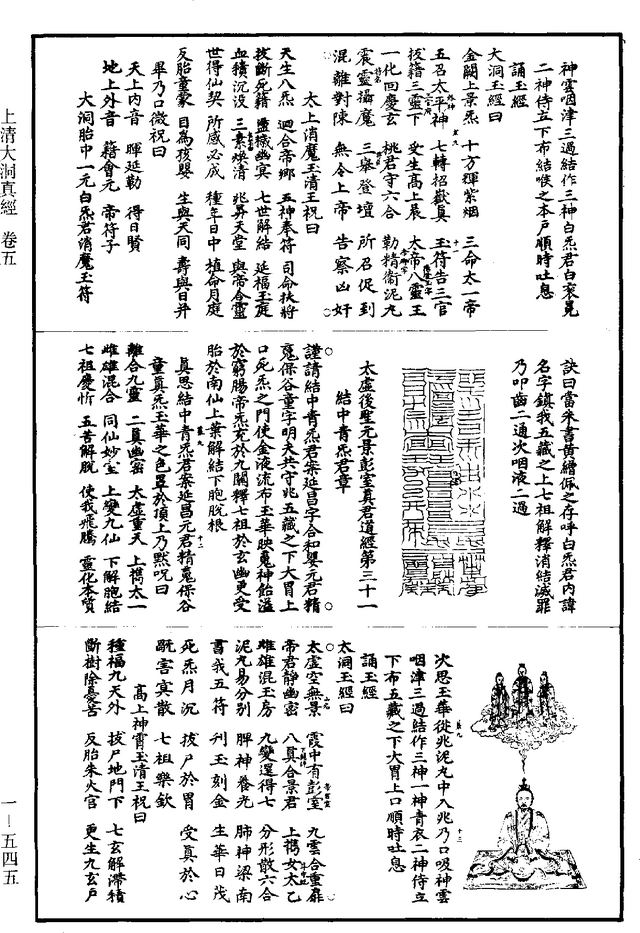 上清大洞真經 卷五
神雲咽津三過結作三神白炁君白衮冕
二神侍立下布結喉之本戶順時吐息
誦玉經
大洞玉經曰
金闕上景炁 十方揮紫烟 三命太一帝
五召太平神 七轉招歡真 玉符告三官
拔籍三靈下 受生高上晨 太帝八靈王
一化回慶玄 桃君守六合 勒精衛泥丸
震靈攝魔 三舉登壇 所召促到
混離對陳 無令上帝 告察凶奸
太上消魔玉清王祝曰
天生八炁 迴合帝鄉 五神奉符 司命扶將
拔斷死籍 盪檅幽冥 七世解結 延福玉庭
血積沉沒 三素煥清 兆昇天堂 與帝合靈
世得仙契 所感必成 種年日中 植命月庭
反胎童蒙 目為孩嬰 生與天同 壽與日并
畢乃口微祝曰
天上內音 暉延勒 得日賢
地上外音 籍會元 帝符子
大洞胎中一元白炁君消魔玉符
訣曰當朱書黃繒佩之存呼白炁君內諱
名字鎮我五藏之上七祖解釋消結滅罪
乃叩齒二通次咽液二過
太虛後聖元景彭室真君道經第三十一
結中青炁君章
謹請結中青炁君案延昌字合和嬰元君精
魂保谷童字明夫共守兆五藏之下大胃上
口死炁之門使金液流布玉華映魂神飴溢
於窮腸帝炁充於九關釋七祖於玄幽更受
胎於南仙上葉解結下胞脫根
真思結中青炁君案延昌元君精魂保谷
童真炁玉華之色罩於頂上乃默呪曰
離合九靈 二真幽密 太虛重天 上攜太一
雌雄混合 同仙妙室 上變九仙 下解胞結
七祖慶忻 五苦解脫 使我飛騰 靈化本質
次思玉華從兆泥丸中入兆乃口吸神雲
咽津三過結作三神一神青衣二神侍立
下布五藏之下大胃上口順時吐息
誦玉經
大洞玉經曰
太虛空無景 霞中有彭室 九雲合重扉
帝君靜幽密 八真合景君 上攜女太乙
雌雄混玉房 九變還得七 分形散六合
泥丸易分別 脾神養光 肺神梁南
書我五符 刊玉刻金 生華日茂
死炁月沉 拔尸於胃 受真於心
翫害冥散 七祖樂欽
高上神霄玉清王祝曰
種福九天外 拔尸地門下 七玄解滯積
斷樹除憂苦 反胎朱火宮 更生九玄戶
一—五四五